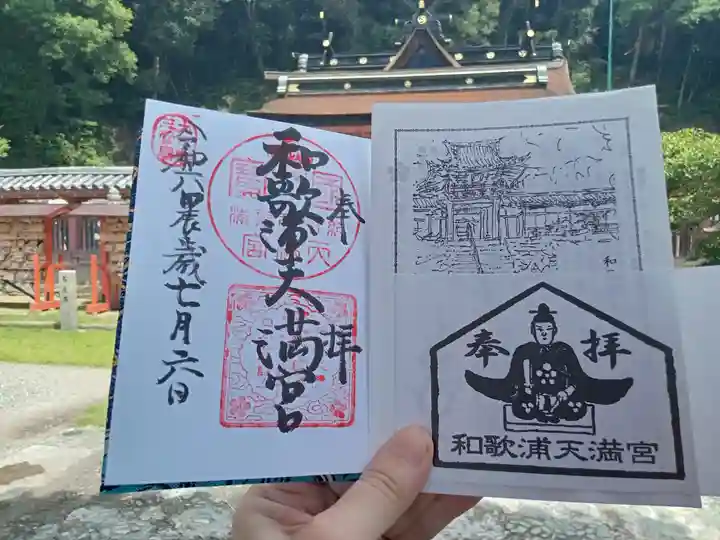 奉拝
和歌浦天満宮
令和六辰歳七月六日
和
奉拝
和歌浦天満宮